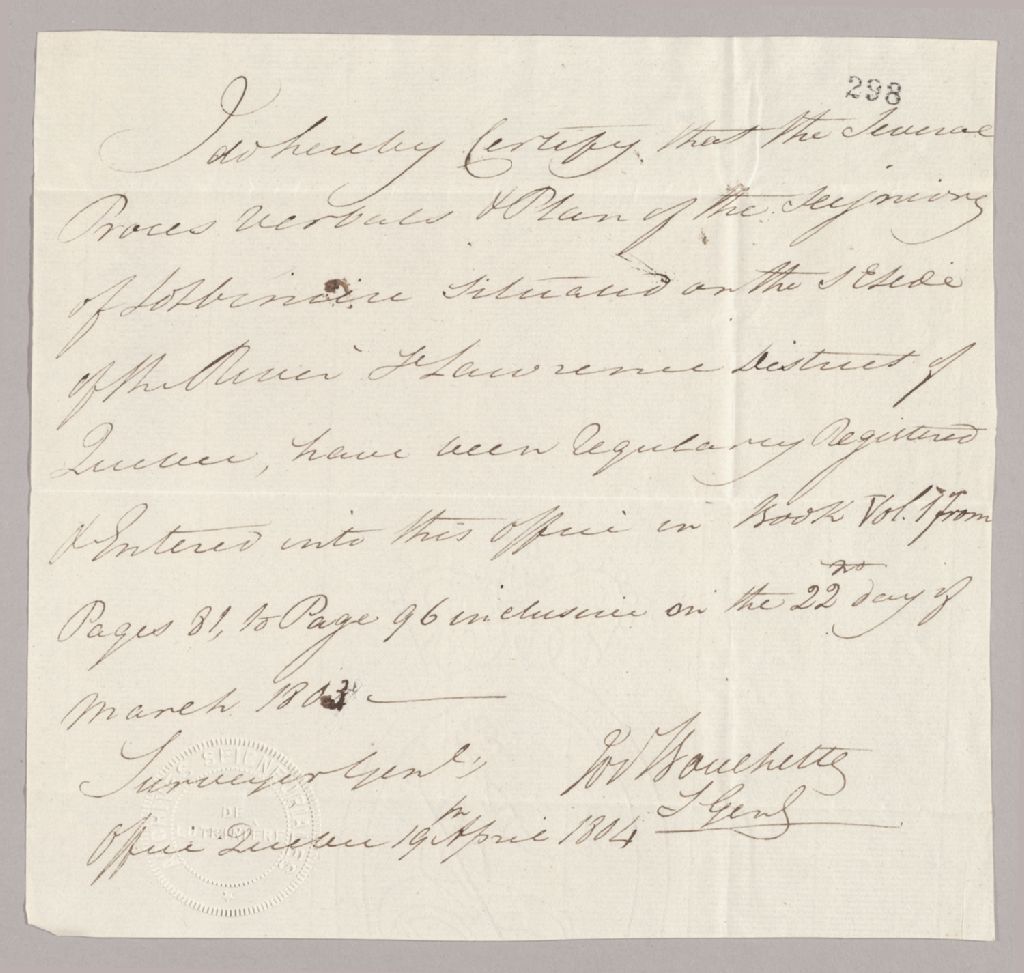 298
I do hereby Certify that the Several
Proces verbals & Plan of the Seigniory
of Lotbiniere Situated on the S E side
of the River St Lawrence District of
Quebec, have been regularly Registered
& Entered into this office in Book Vol. 1 from
Pages 81, to Page 96 inclusive on the 22nd day of
March 1803
Surveyor Genl,
Jos Bouchette
S Genl
Office Quebec 19th April 1804
DE